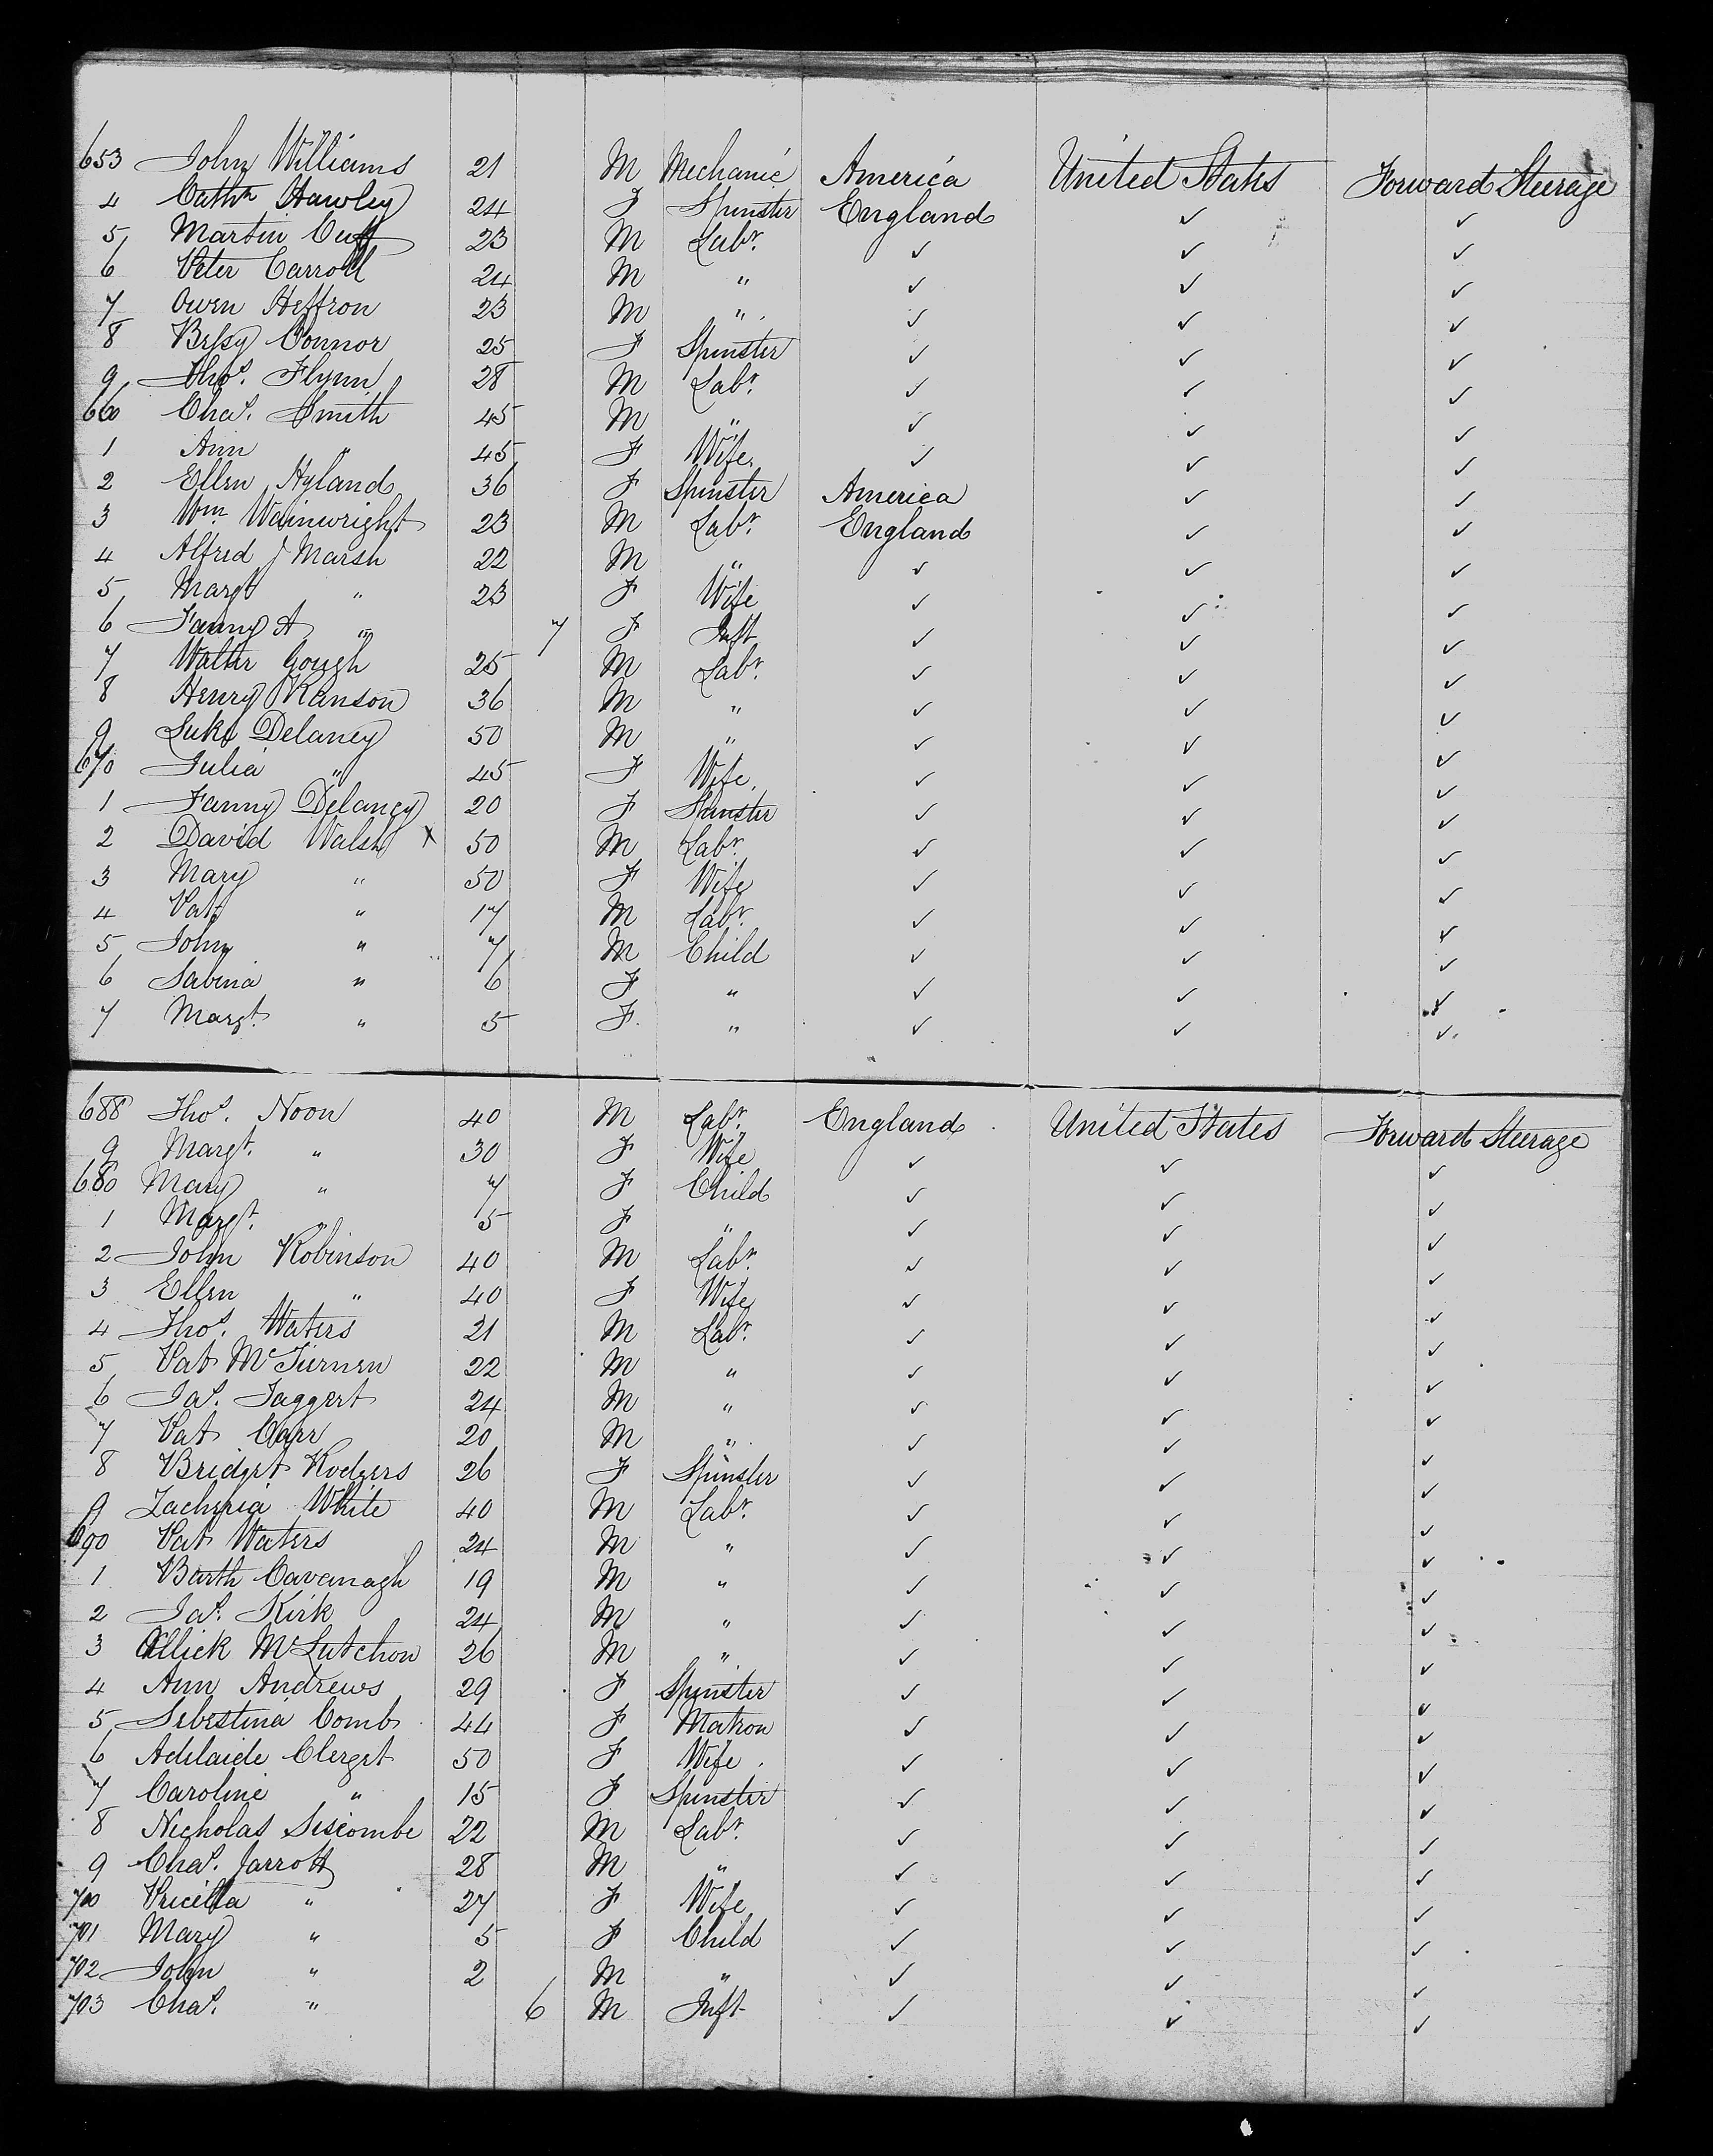 653 John Williams 21 M Mechanic America United States Forward Steerage
4 Cathn Hawley 24 F Spinster England ✓ ✓
5 Martin Cuff 23 M Labr. ✓ ✓ ✓
6 Peter Carroll 24 M " ✓ ✓ ✓
7 Owen Heffron 23 M " ✓ ✓ ✓
8 Betsy Connor 25 F Spinster ✓ ✓ ✓
9 Thos. Flynn 28 M Labr. ✓ ✓ ✓
660 Chas. Smith 45 M " ✓ ✓ ✓
1 Ann " 45 F Wife ✓ ✓ ✓
2 Ellen Hyland 36 F Spinster America ✓ ✓
3 Wm Wainwright 23 M Labr. England ✓ ✓
4 Alfred J Marsh 22 M " ✓ ✓ ✓
5 Margt " 23 F Wife ✓ ✓ ✓
6 Fanny A " 7 F Inft ✓ ✓ ✓
7 Walter Gough 25 M Labr. ✓ ✓ ✓
8 Henry Ranson 36 M " ✓ ✓ ✓
9 Luke Delaney 50 M " ✓ ✓ ✓
670 Julia " 45 F Wife ✓ ✓ ✓
1 Fanny Delaney 20 F Spinster ✓ ✓ ✓
2 David Walsh X 50 M Labr. ✓ ✓ ✓
3 Mary " 50 F Wife ✓ ✓ ✓
4 Pat " 17 M Labr. ✓ ✓ ✓
5 John " 7 M Child ✓ ✓ ✓
6 Sabina " 6 F " ✓ ✓ ✓
7 Margt. " 5 F " ✓ ✓ ✓
688 Thos. Noon 40 M Labr. England United States Forward Steerage
9 Margt. " 30 F Wife ✓ ✓ ✓
680 Mary " 7 F Child ✓ ✓ ✓
1 Margt. " 5 F " ✓ ✓ ✓
2 John Robinson 40 M Labr. ✓ ✓ ✓
3 Ellen " 40 F Wife ✓ ✓ ✓
4 Thos. Waters 21 M Labr. ✓ ✓ ✓
5 Pat McTiernen 22 M " ✓ ✓ ✓
6 Jas. Taggert 24 M " ✓ ✓ ✓
7 Pat Carr 20 M " ✓ ✓ ✓
8 Bridget Rodgers 26 F Spinster ✓ ✓ ✓
9 Zacheria White 40 M Labr. ✓ ✓ ✓
690 Pat Waters 24 M " ✓ ✓ ✓
1 Barth Cavanagh 19 M " ✓ ✓ ✓
2 Jas. Kirk 24 M " ✓ ✓ ✓
3 Allick McLutchon 26 M " ✓ ✓ ✓
4 Ann Andrews 29 F Spinster ✓ ✓ ✓
5 Sebestina Comb 44 F Matron ✓ ✓ ✓
6 Adelaide Clerget 50 F Wife ✓ ✓ ✓
7 Caroline " 15 F Spinster ✓ ✓ ✓
8 Nicholas Siscombe 22 M Labr. ✓ ✓ ✓
9 Chas. Jarrott 28 M " ✓ ✓ ✓
700 Pricilla " 27 F Wife ✓ ✓ ✓
701 Mary " 5 F Child ✓ ✓ ✓
702 John " 2 M " ✓ ✓ ✓
703 Chas. " 6 M Inft ✓ ✓ ✓